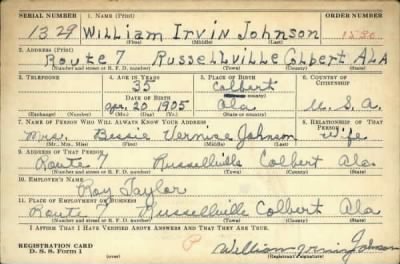 SERIAL NUMBER 1. NAME (Print) ORDER NUMBER
1329 William Irvin Johnson
(First) (Middle) (Last)
2. ADDRESS (Print)
Route 7 Russellville Colbert ALA
(Number and street or R. F. D. number) (Town) (County) (State)
3. TELEPHONE 4. AGE IN YEARS 5. PLACE OF BIRTH 6. COUNTRY OF CITIZENSHIP
35 Colbert
(Town or county)
DATE OF BIRTH
Apr. 20 1905 Ala U. S. A.
(Exchange) (Number) (Mo.) (Day) (Yr.) (State or country)
7. NAME OF PERSON WHO WILL ALWAYS KNOW YOUR ADDRESS 8. RELATIONSHIP OF THAT PERSON
Mrs. Bessie Vernice Johnson Wife
(Mr., Mrs., Miss) (First) (Middle) (Last)
9. ADDRESS OF THAT PERSON
Route 7 Russellville Colbert Ala.
(Number and street or R. F. D. number) (Town) (County) (State)
10. EMPLOYER'S NAME
Roy Taylor
11. PLACE OF EMPLOYMENT OR BUSINESS
Route 7 Russellville Colbert Ala
(Number and street or R. F. D. number) (Town) (County) (State)
I AFFIRM THAT I HAVE VERIFIED ABOVE ANSWERS AND THAT THEY ARE TRUE.
REGISTRATION CARD
D. S. S. Form 1
P
William Irvin Johnson
(Registrant's signature)